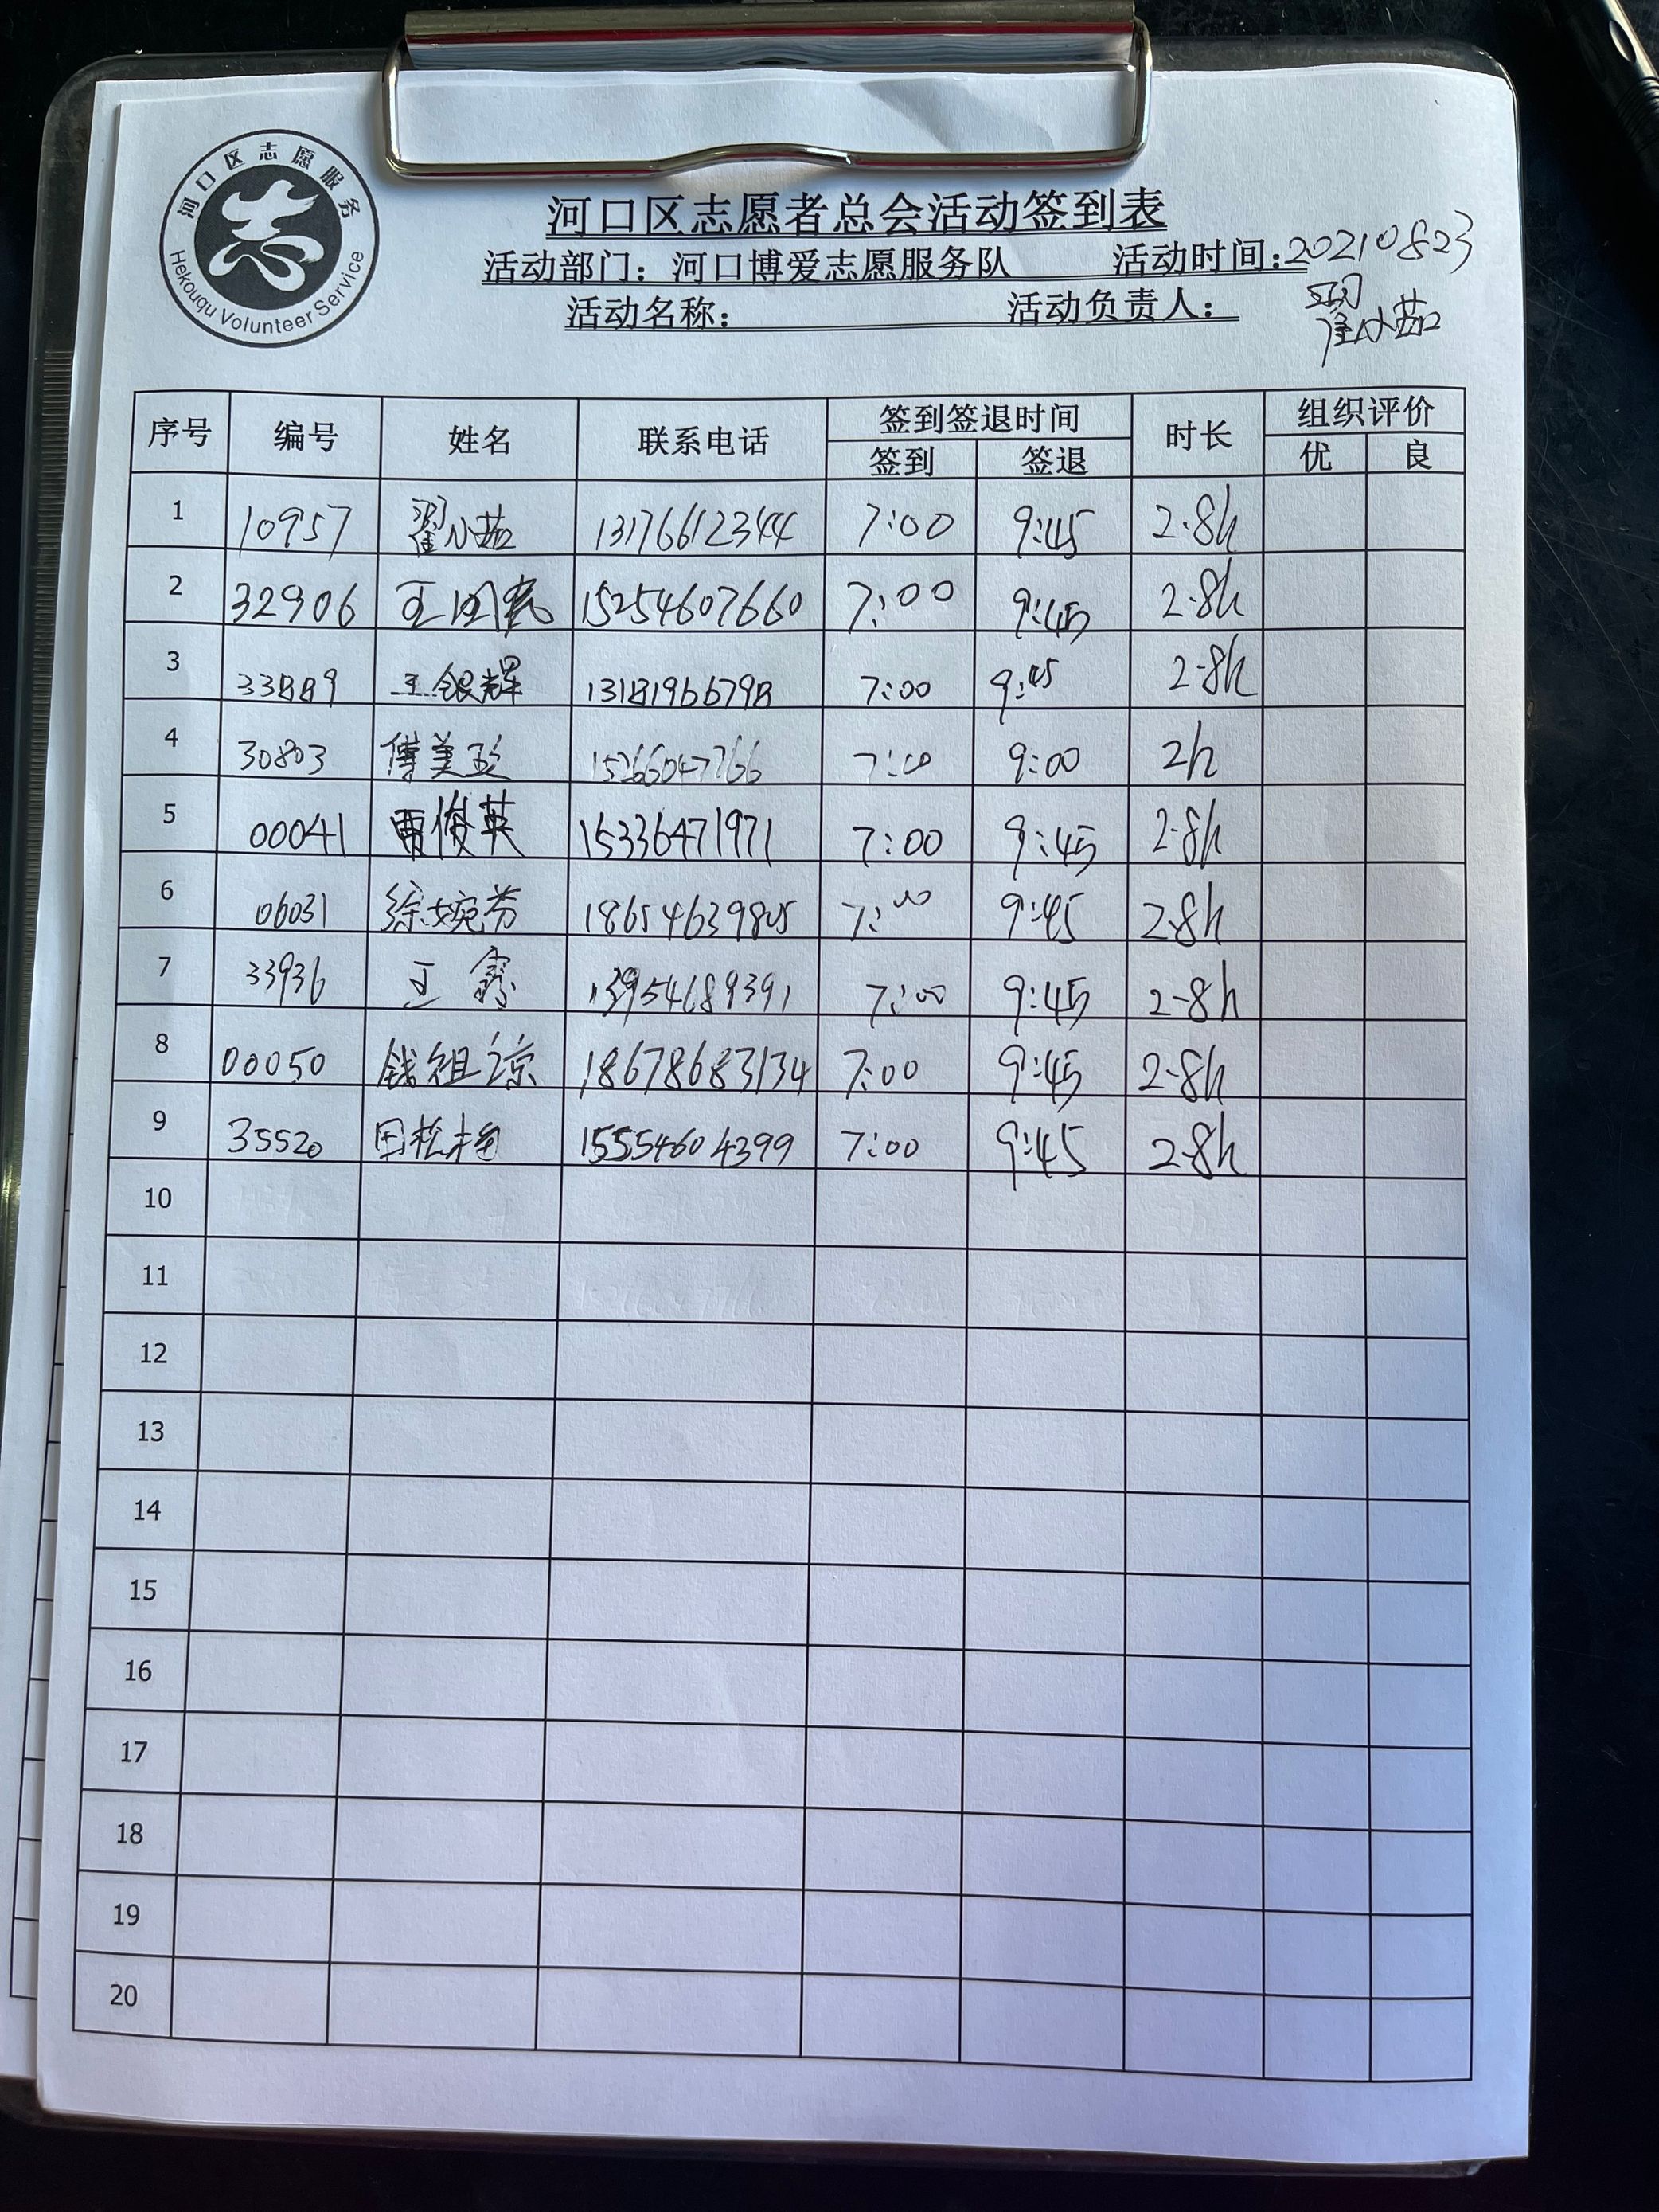 河口区志愿服务
Hekouqu Volunteer Service
河口区志愿者总会活动签到表
活动部门：河口博爱志愿服务队 活动时间：20210823
活动名称： 活动负责人： 翟小茹
序号 编号 姓名 联系电话 签到签退时间 时长 组织评价
签到 签退 优 良
1 10957 翟小茹 13176612344 7:00 9:45 2.8h
2 32906 王国 15254607660 7:00 9:45 2.8h
3 33889 王银辉 13181966798 7:00 9:45 2.8h
4 30803 傅美玲 15266047766 7:00 9:00 2h
5 00041 贾俊英 15336471971 7:00 9:45 2.8h
6 06031 徐婉芳 18654639805 7:00 9:45 2.8h
7 33936 王鑫 13954689391 7:00 9:45 2.8h
8 00050 钱祖琼 18678683134 7:00 9:45 2.8h
9 35520 田松梅 15554604399 7:00 9:45 2.8h
10
11
12
13
14
15
16
17
18
19
20